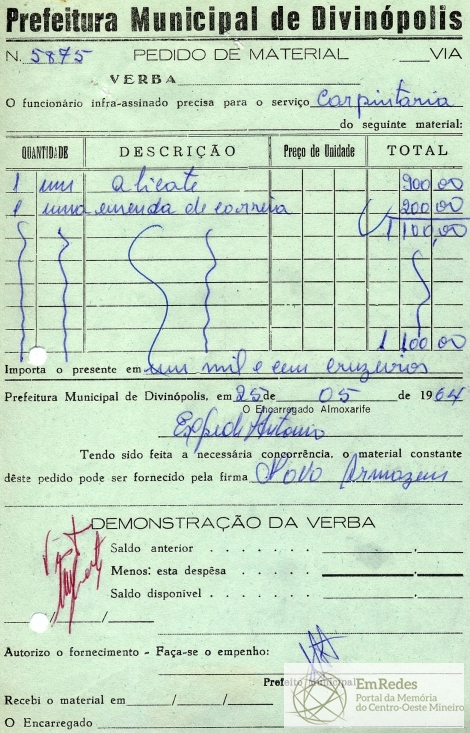 Prefeitura Municipal de Divinópolis
N. 5875 PEDIDO DE MATERIAL VIA
VERBA
O funcionário infra-assinado precisa para o serviço Carpintaria
do seguinte material:
QUANTIDADE DESCRIÇÃO Preço de Unidade TOTAL
1 um alicate 900,00
1 uma emenda de correia 200,00
1 100,00
1 100,00
Importa o presente em um mil e cem cruzeiros
Prefeitura Municipal de Divinópolis, em 25 de 05 de 1964
O Encarregado Almoxarife
Antonio
Tendo sido feita a necessária concorrência, o material constante
dêste pedido pode ser fornecido pela firma Novo Armazem
DEMONSTRAÇÃO DA VERBA
Saldo anterior
Menos: esta despêsa
Saldo disponível
Autorizo o fornecimento - Faça-se o empenho:
Prefeito Municipal
Recebi o material em / /
O Encarregado
EmRedes
Portal da Memória
do Centro-Oeste Mineiro